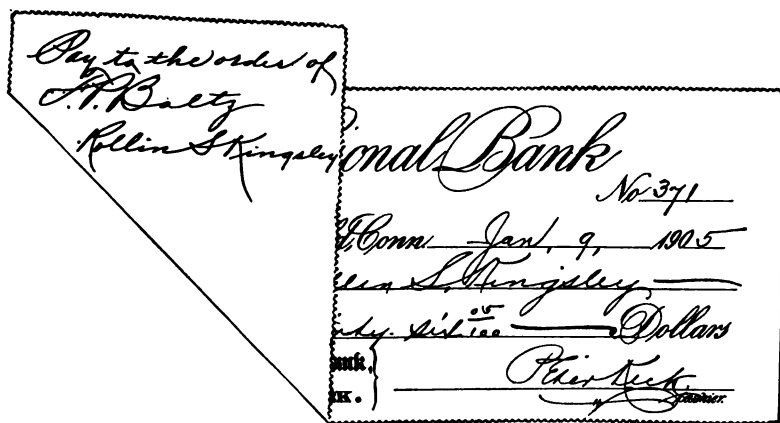 Pay to the order of
F. P. Baltz
Rollin S Kingsley
ional Bank
No 371
Conn Jan, 9, 1905
S. Kingsley
six 05/100 Dollars
ank,
K.
Cashier.